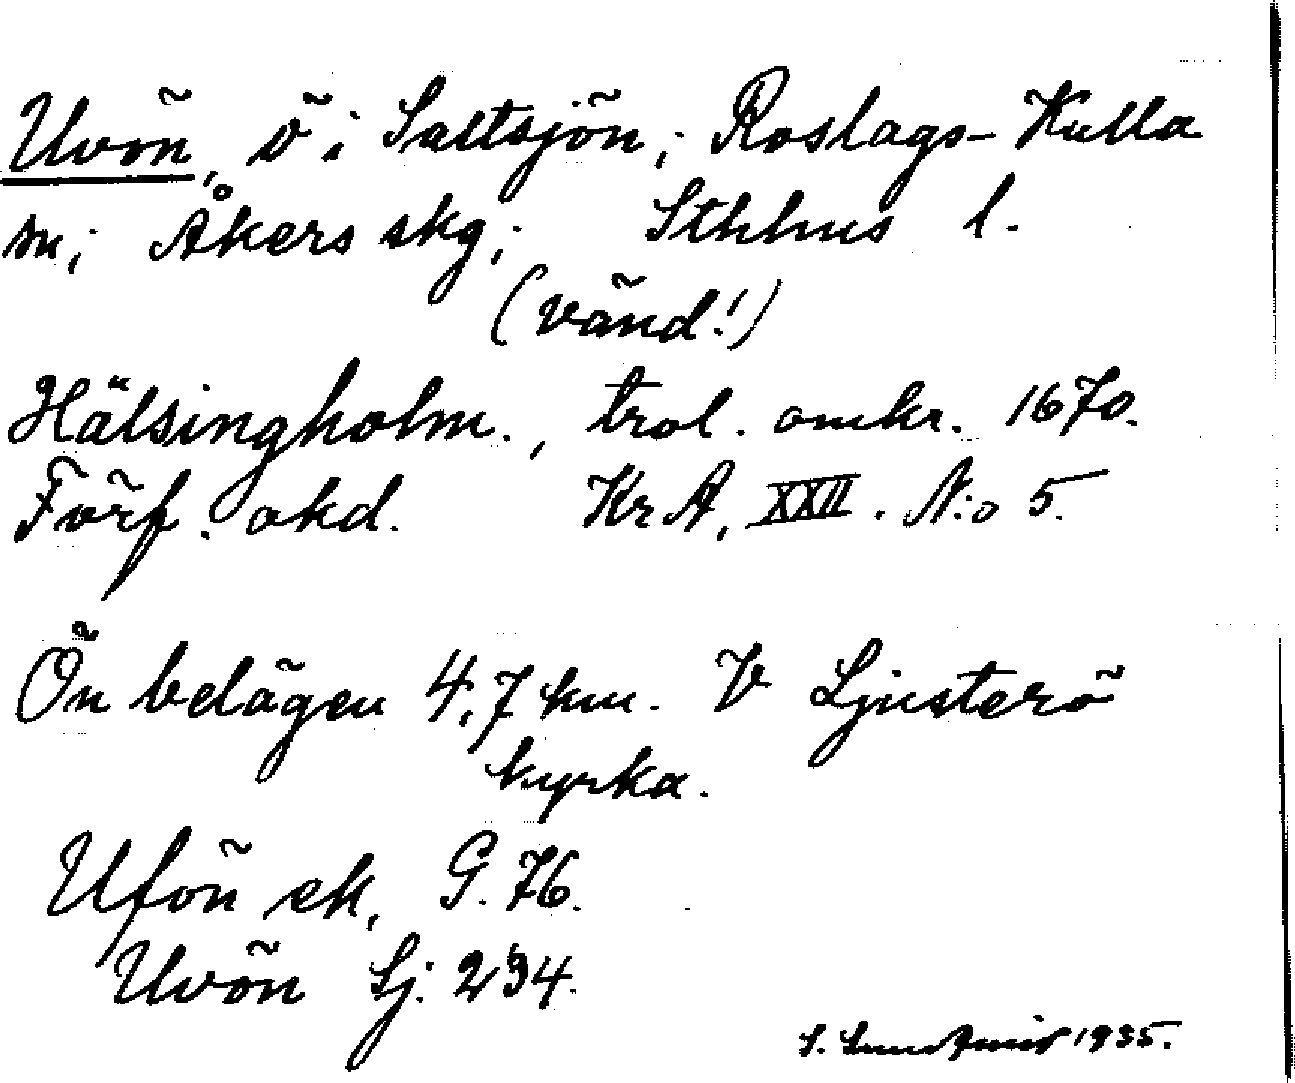 Uvön, ö i Saltsjön; Roslags-Kulla
sn; Åkers skg; Sthhus l.
(Vänd!)
Hälsingholm., trol. omkr. 1670.
Förf. okd. KrA, XXII. N:o 5.
Ön belägen 4,7 km. V Ljusterö
kyrka.
Ufön ek, G. 76.
Uvön Sj. 234.
S. 1935.